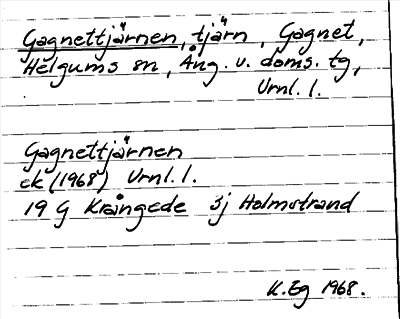 Gagnettjärnen, tjärn, Gagnet,
Helgums sn, Ång. v. doms. tg,
Urnl. l.
Gagnettjärnen
ek (1968) Urnl. l.
19 G Krångede 3j Holmstrand
K. Eg 1968.